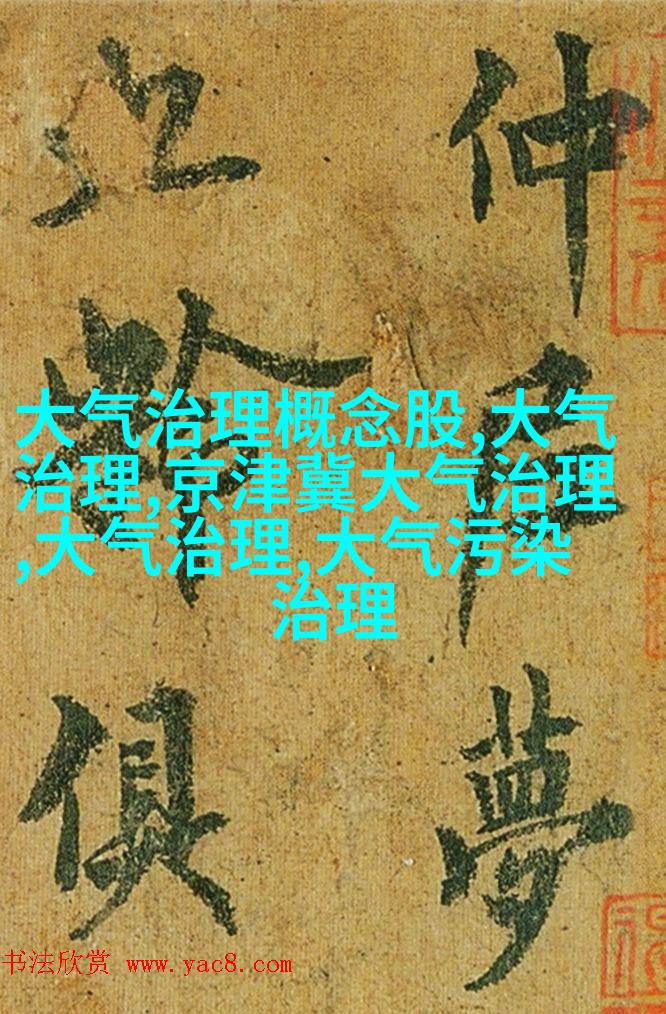 仲尼夢
齡俱
大气治理概念股,大气
治理,京津冀大气治理
,大气治理,大气污染
治理
书法欣赏 www.yac8.com